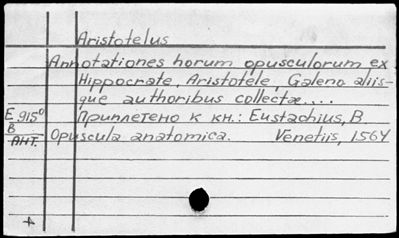 Aristotelus
Annotationes horum opusculorum ex
Hippocrate, Aristotele, Galeno aliis-
que authoribus collectæ....
E 915⁰ Приплетено к кн.: Eustachius, B.
B
АНТ. Opuscula anatomica. Venetiis, 1564
+